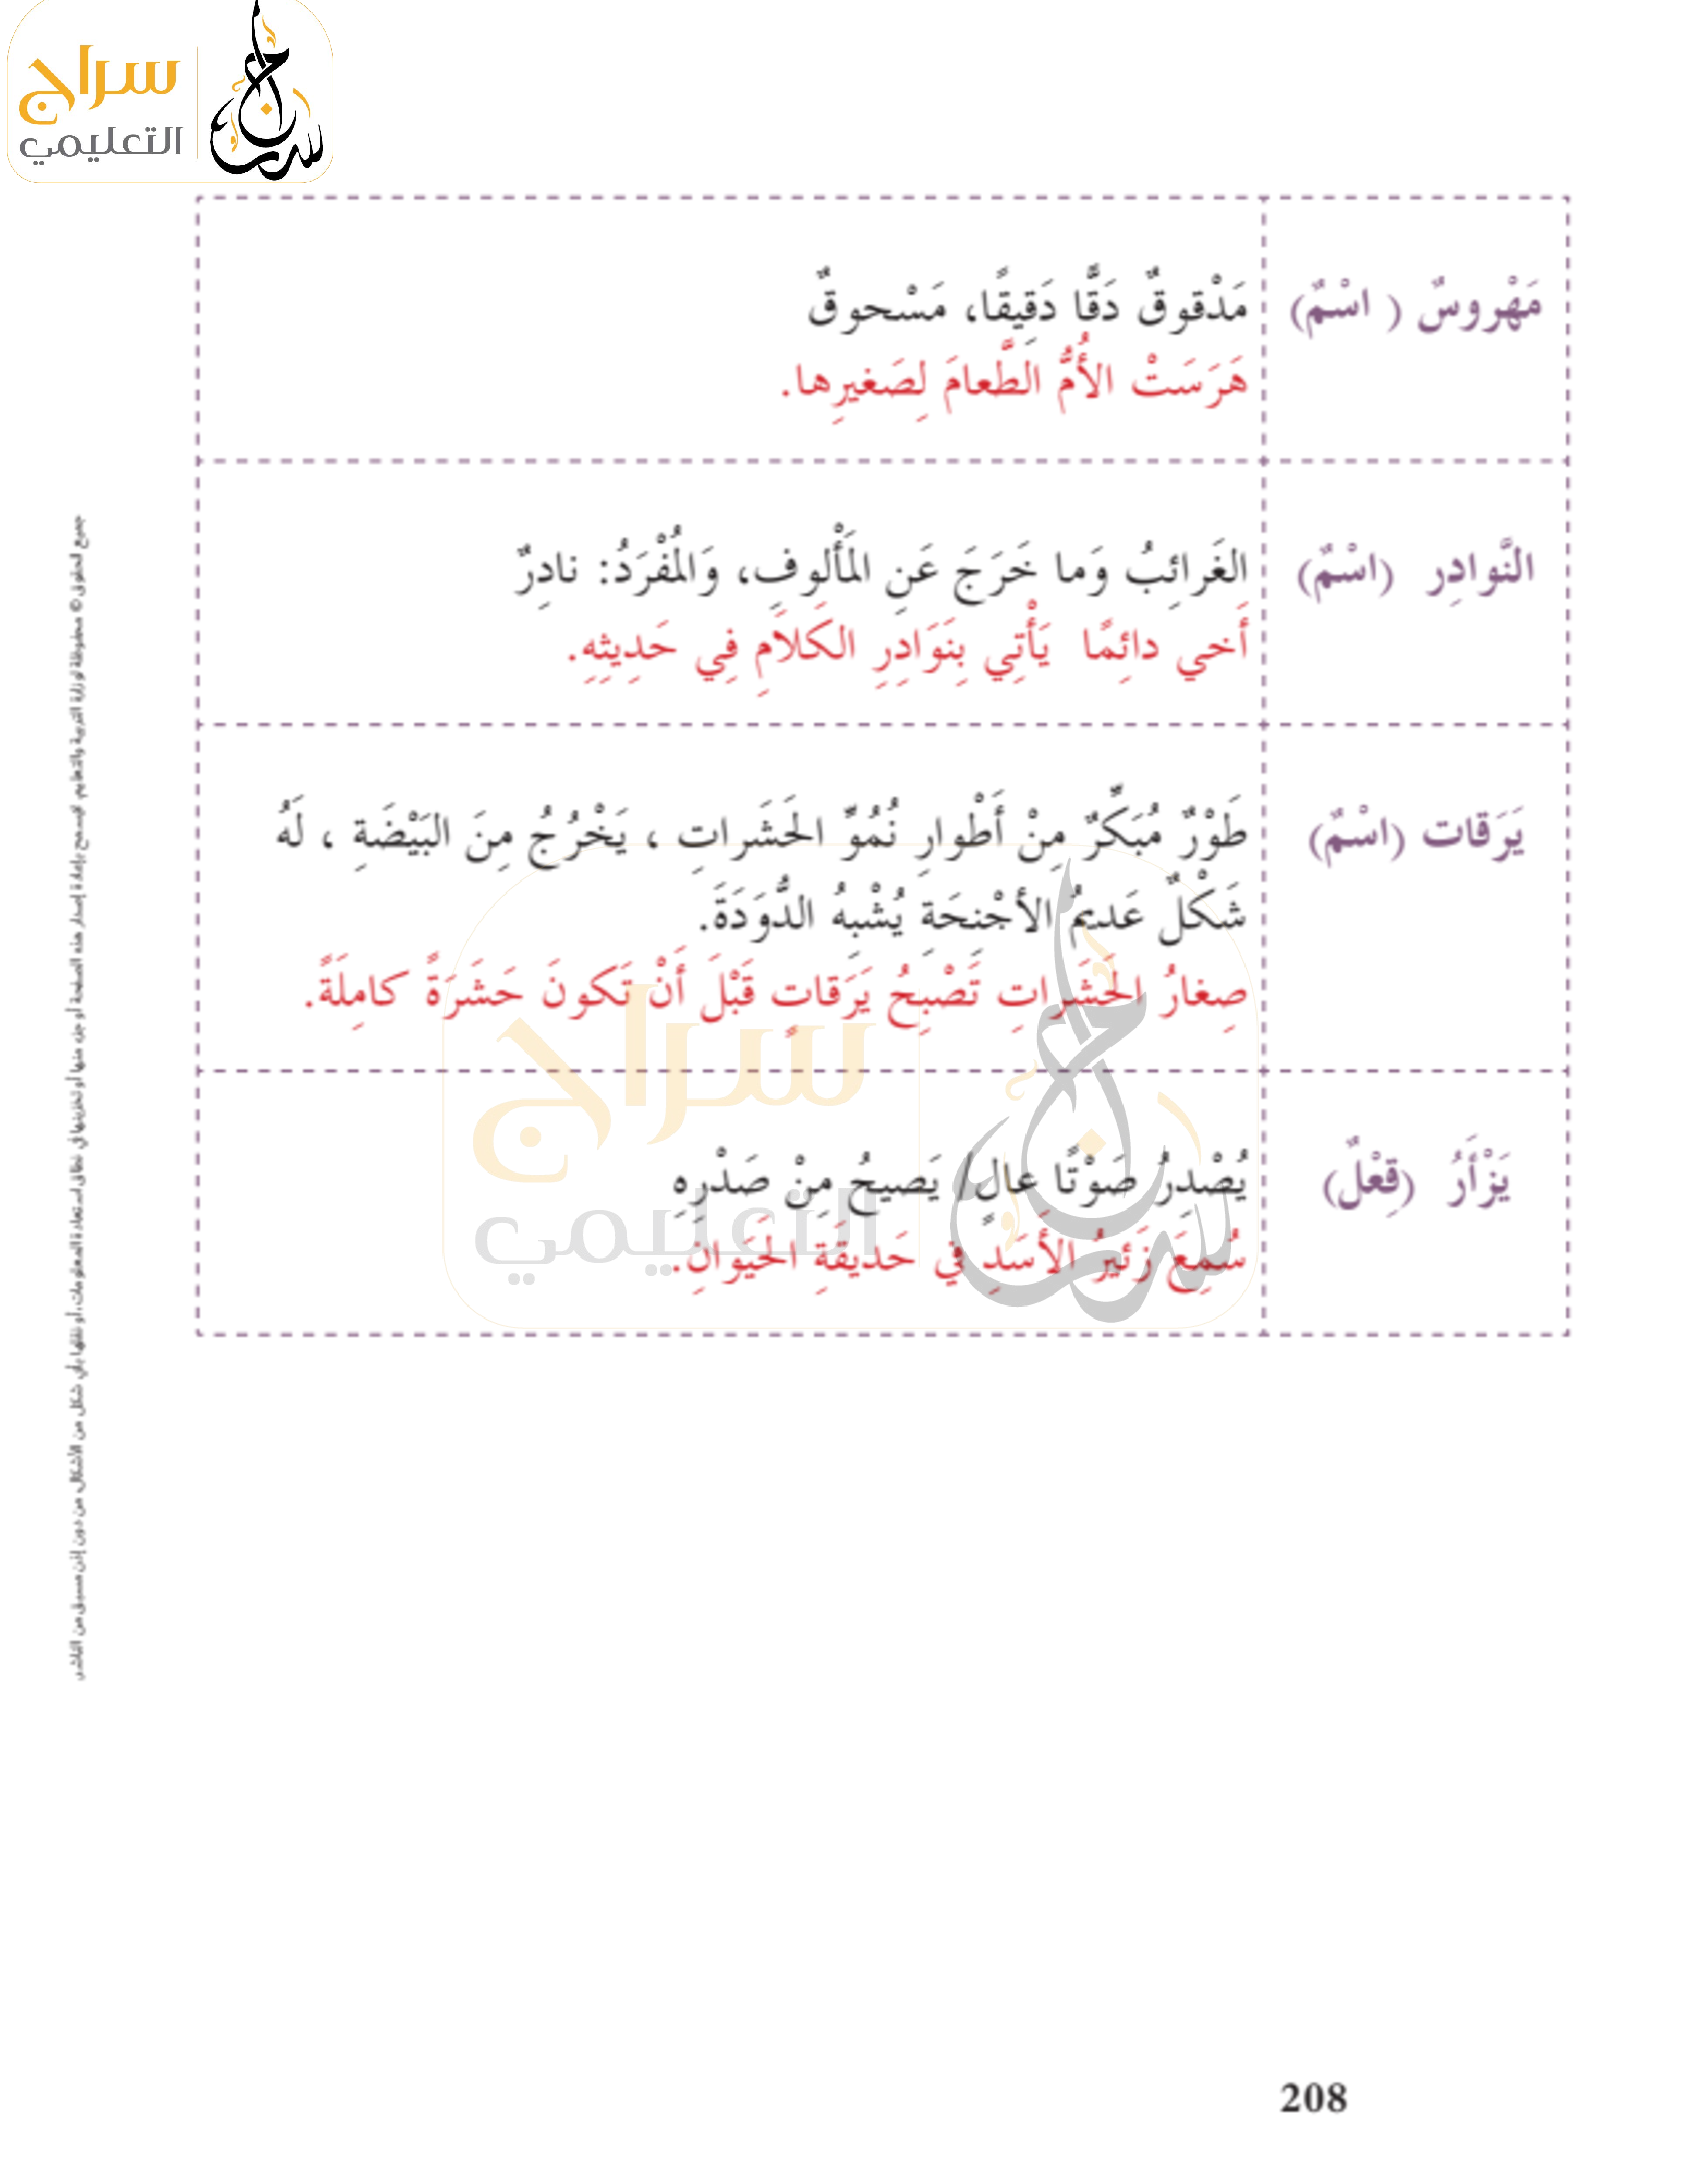 سراج
التعليمي
مَهْروسٌ ( اسْمٌ)
مَدْقوقٌ دَقًّا دَقِيقًا، مَسْحوقٌ
هَرَسَتْ الأُمُّ الطَّعامَ لِصَغيرِها.
النَّوادِر (اسْمٌ)
الغَرائِبُ وَما خَرَجَ عَنِ المَأْلوفِ، وَالمُفْرَدُ: نادِرٌ
أَخي دائِمًا يَأْتِي بِنَوَادِرِ الكَلاَمِ فِي حَدِيثِهِ.
يَرَقات (اسْمٌ)
طَوْرٌ مُبَكِّرٌ مِنْ أَطْوارِ نُمُوِّ الحَشَراتِ ، يَخْرُجُ مِنَ البَيْضَةِ ، لَهُ
شَكْلٌ عَديمُ الأجْنِحَةِ يُشْبِهُ الدُّوَدَةَ.
صِغارُ الحَشَراتِ تَصْبِحُ يَرَقاتٍ قَبْلَ أَنْ تَكونَ حَشَرَةً كامِلَةً.
يَزْأَرُ (فِعْلٌ)
يُصْدِرُ صَوْتًا عالٍ/ يَصيحُ مِنْ صَدْرِهِ
سُمِعَ زَئيرُ الأَسَدِ في حَديقَةِ الحَيَوانِ.
سراج
التعليمي
جميع الحقوق © محفوظة لوزارة التربية والتعليم. لا يسمح بإعادة إصدار هذه الصفحة أو جزء منها أو تخزينها في نطاق استعادة المعلومات، أو نقلها بأي شكل من الأشكال، من دون إذن مسبق من الناشر.
208